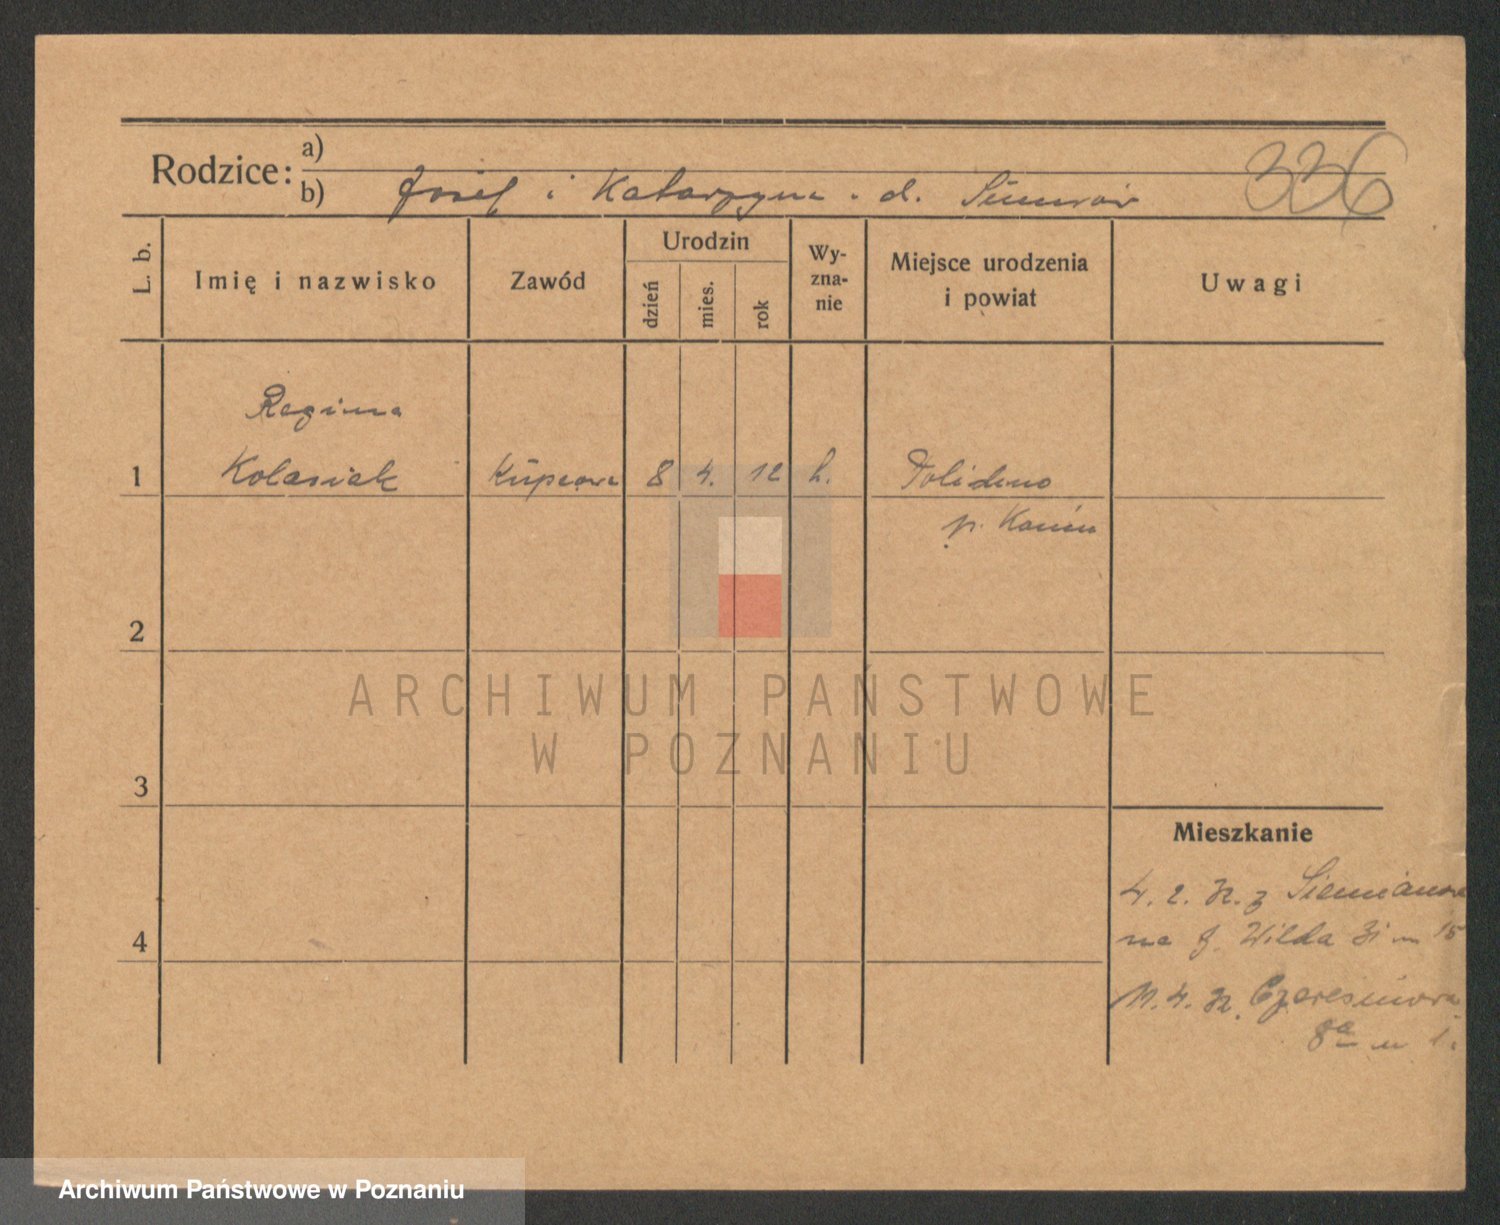 336
Rodzice: a)
b) Józef i Katarzyna . d.
L. b.
Imię i nazwisko
Zawód
Urodzin
dzień
mies.
rok
Wy-
zna-
nie
Miejsce urodzenia
i powiat
Uwagi
Regina
1 Kolasiak 8 4. 12
p. Konin
2
3
4
Mieszkanie
4. 2. 32. z
na D. Wilda 31 m 15
11. 4. 32. Czereśniowa
8a m 1.
ARCHIWUM PAŃSTWOWE
W POZNANIU
Archiwum Państwowe w Poznaniu